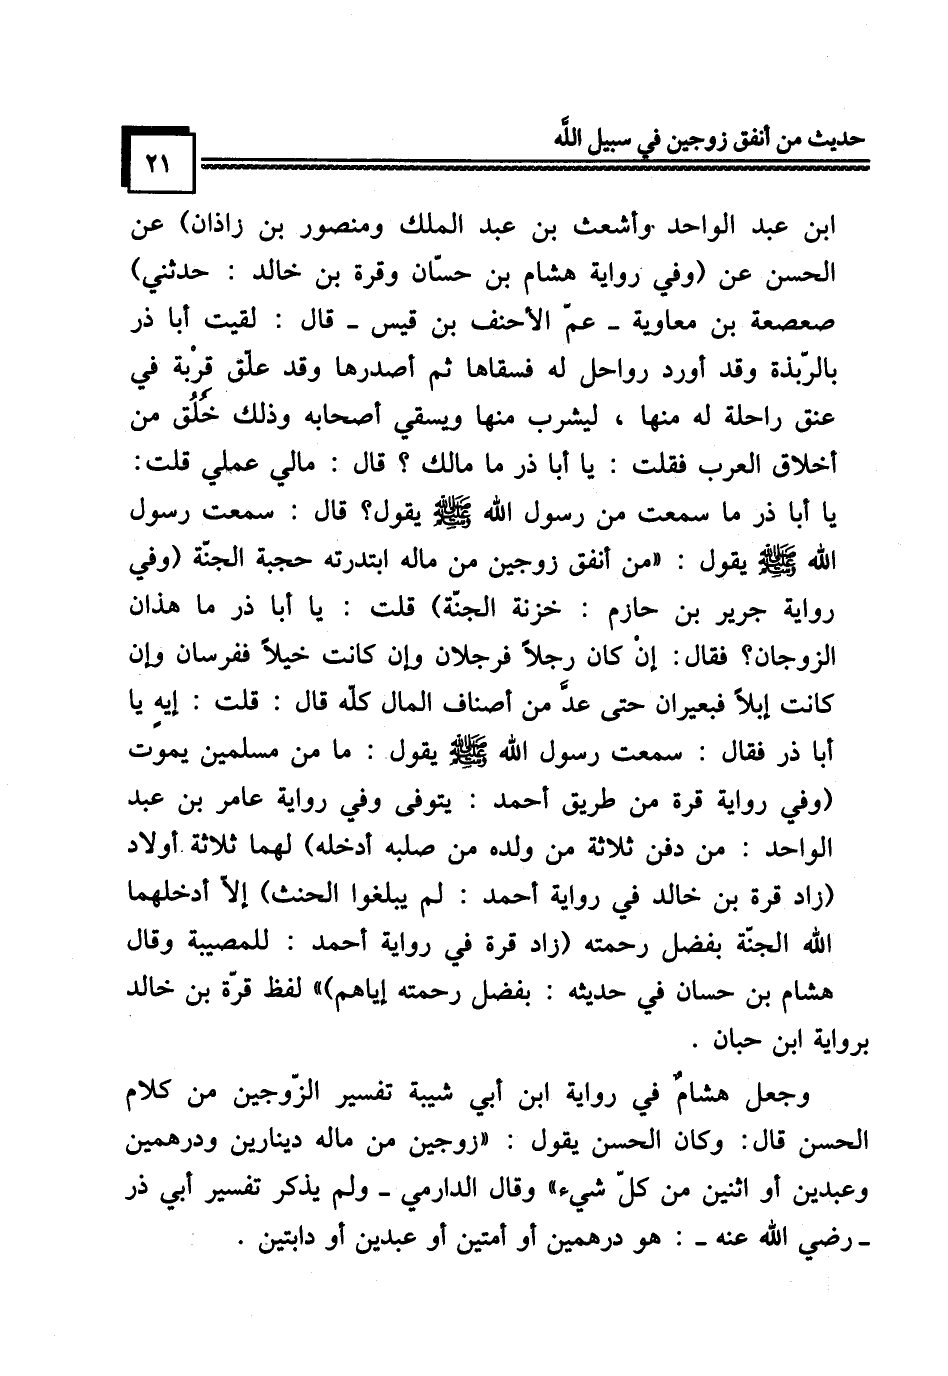 حديث من أنفق زوجين في سبيل اللَّه
٢١
ابن عبد الواحد وأشعث بن عبد الملك ومنصور بن زاذان) عن
الحسن عن (وفي رواية هشام بن حسّان وقرة بن خالد : حدثني)
صعصعة بن معاوية ـ عمّ الأحنف بن قيس ـ قال : لقيت أبا ذر
بالرّبذة وقد أورد رواحل له فسقاها ثم أصدرها وقد علّق قرْبة في
عنق راحلة له منها ، ليشرب منها ويسقي أصحابه وذلك خُلُق من
أخلاق العرب فقلت : يا أبا ذر ما مالك ؟ قال : مالي عملي قلت:
يا أبا ذر ما سمعت من رسول الله ﷺ يقول؟ قال : سمعت رسول
الله ﷺ يقول : «من أنفق زوجين من ماله ابتدرته حجبة الجنّة (وفي
رواية جرير بن حازم : خزنة الجنّة) قلت : يا أبا ذر ما هذان
الزوجان؟ فقال: إنْ كان رجلاً فرجلان وإن كانت خيلاً ففرسان وإن
كانت إبلاً فبعيران حتى عدَّ من أصناف المال كلّه قال : قلت : إيهِ يا
أبا ذر فقال : سمعت رسول الله ﷺ يقول : ما من مسلمين يموت
(وفي رواية قرة من طريق أحمد : يتوفى وفي رواية عامر بن عبد
الواحد : من دفن ثلاثة من ولده من صلبه أدخله) لهما ثلاثة أولاد
(زاد قرة بن خالد في رواية أحمد : لم يبلغوا الحنث) إلاّ أدخلهما
الله الجنّة بفضل رحمته (زاد قرة في رواية أحمد : للمصيبة وقال
هشام بن حسان في حديثه : بفضل رحمته إياهم)» لفظ قرّة بن خالد
برواية ابن حبان .
وجعل هشامٌ في رواية ابن أبي شيبة تفسير الزّوجين من كلام
الحسن قال: وكان الحسن يقول : «زوجين من ماله دينارين ودرهمين
وعبدين أو اثنين من كلّ شيء» وقال الدارمي ـ ولم يذكر تفسير أبي ذر
ـ رضي الله عنه ـ : هو درهمين أو أمتين أو عبدين أو دابتين .